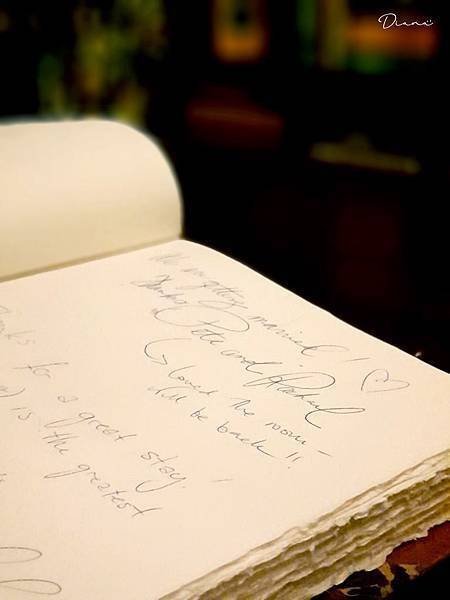 Diana
We're getting married!
Thanks
Pete and Rachael
loved the room -
will be back!!
for a great stay!
is the greatest